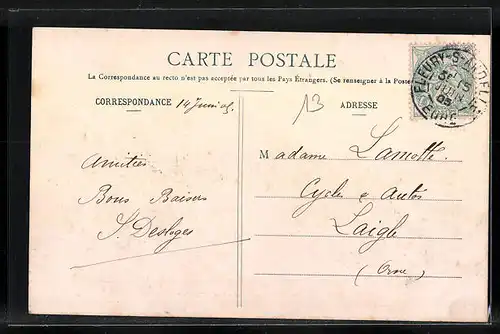 CARTE POSTALE
La Correspondance au recto n'est pas acceptée par tous les Pays Étrangers. (Se renseigner à la Poste
CORRESPONDANCE 14 Juin 05.
13
ADRESSE
FLEURY-S-ANDELLE
15
JUIN
05
EURE
Amitiés
Bons Baisers
Madame Lamotte.
Cycles & Autos
Laigle
(Orne)